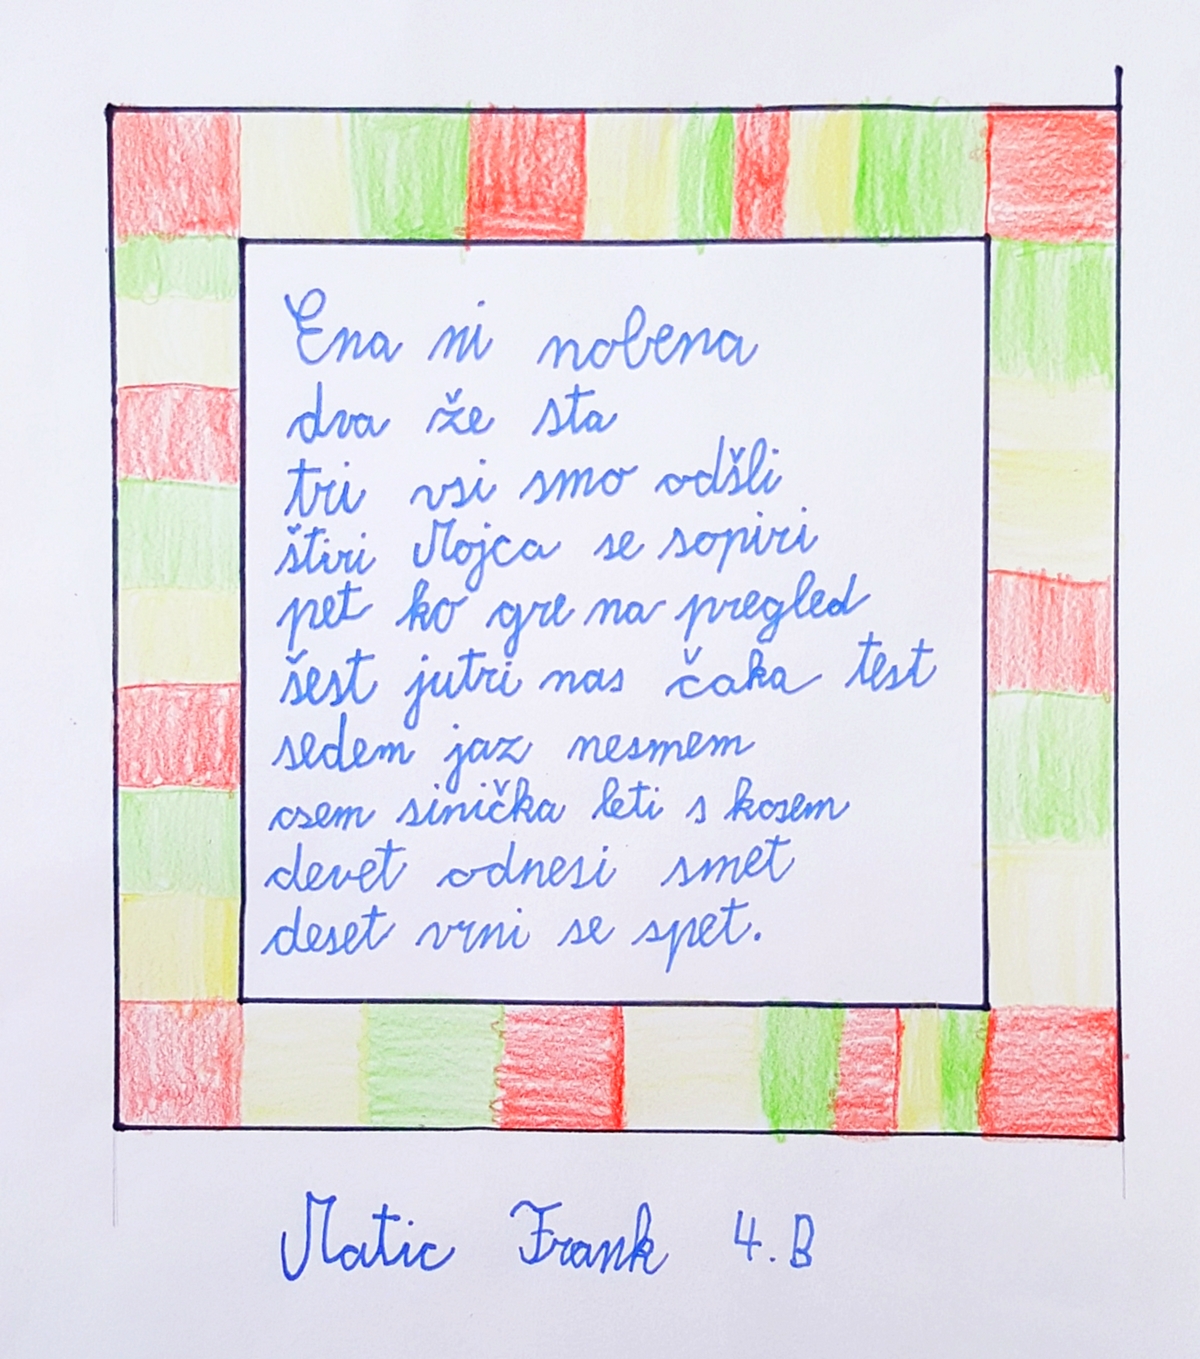 Ena ni nobena
dva že sta
tri vsi smo odšli
štiri Mojca se sopiri
pet ko gre na pregled
šest jutri nas čaka test
sedem jaz nesmem
osem sinička leti s kosem
devet odnesi smet
deset vrni se spet.
Matic Frank 4. B